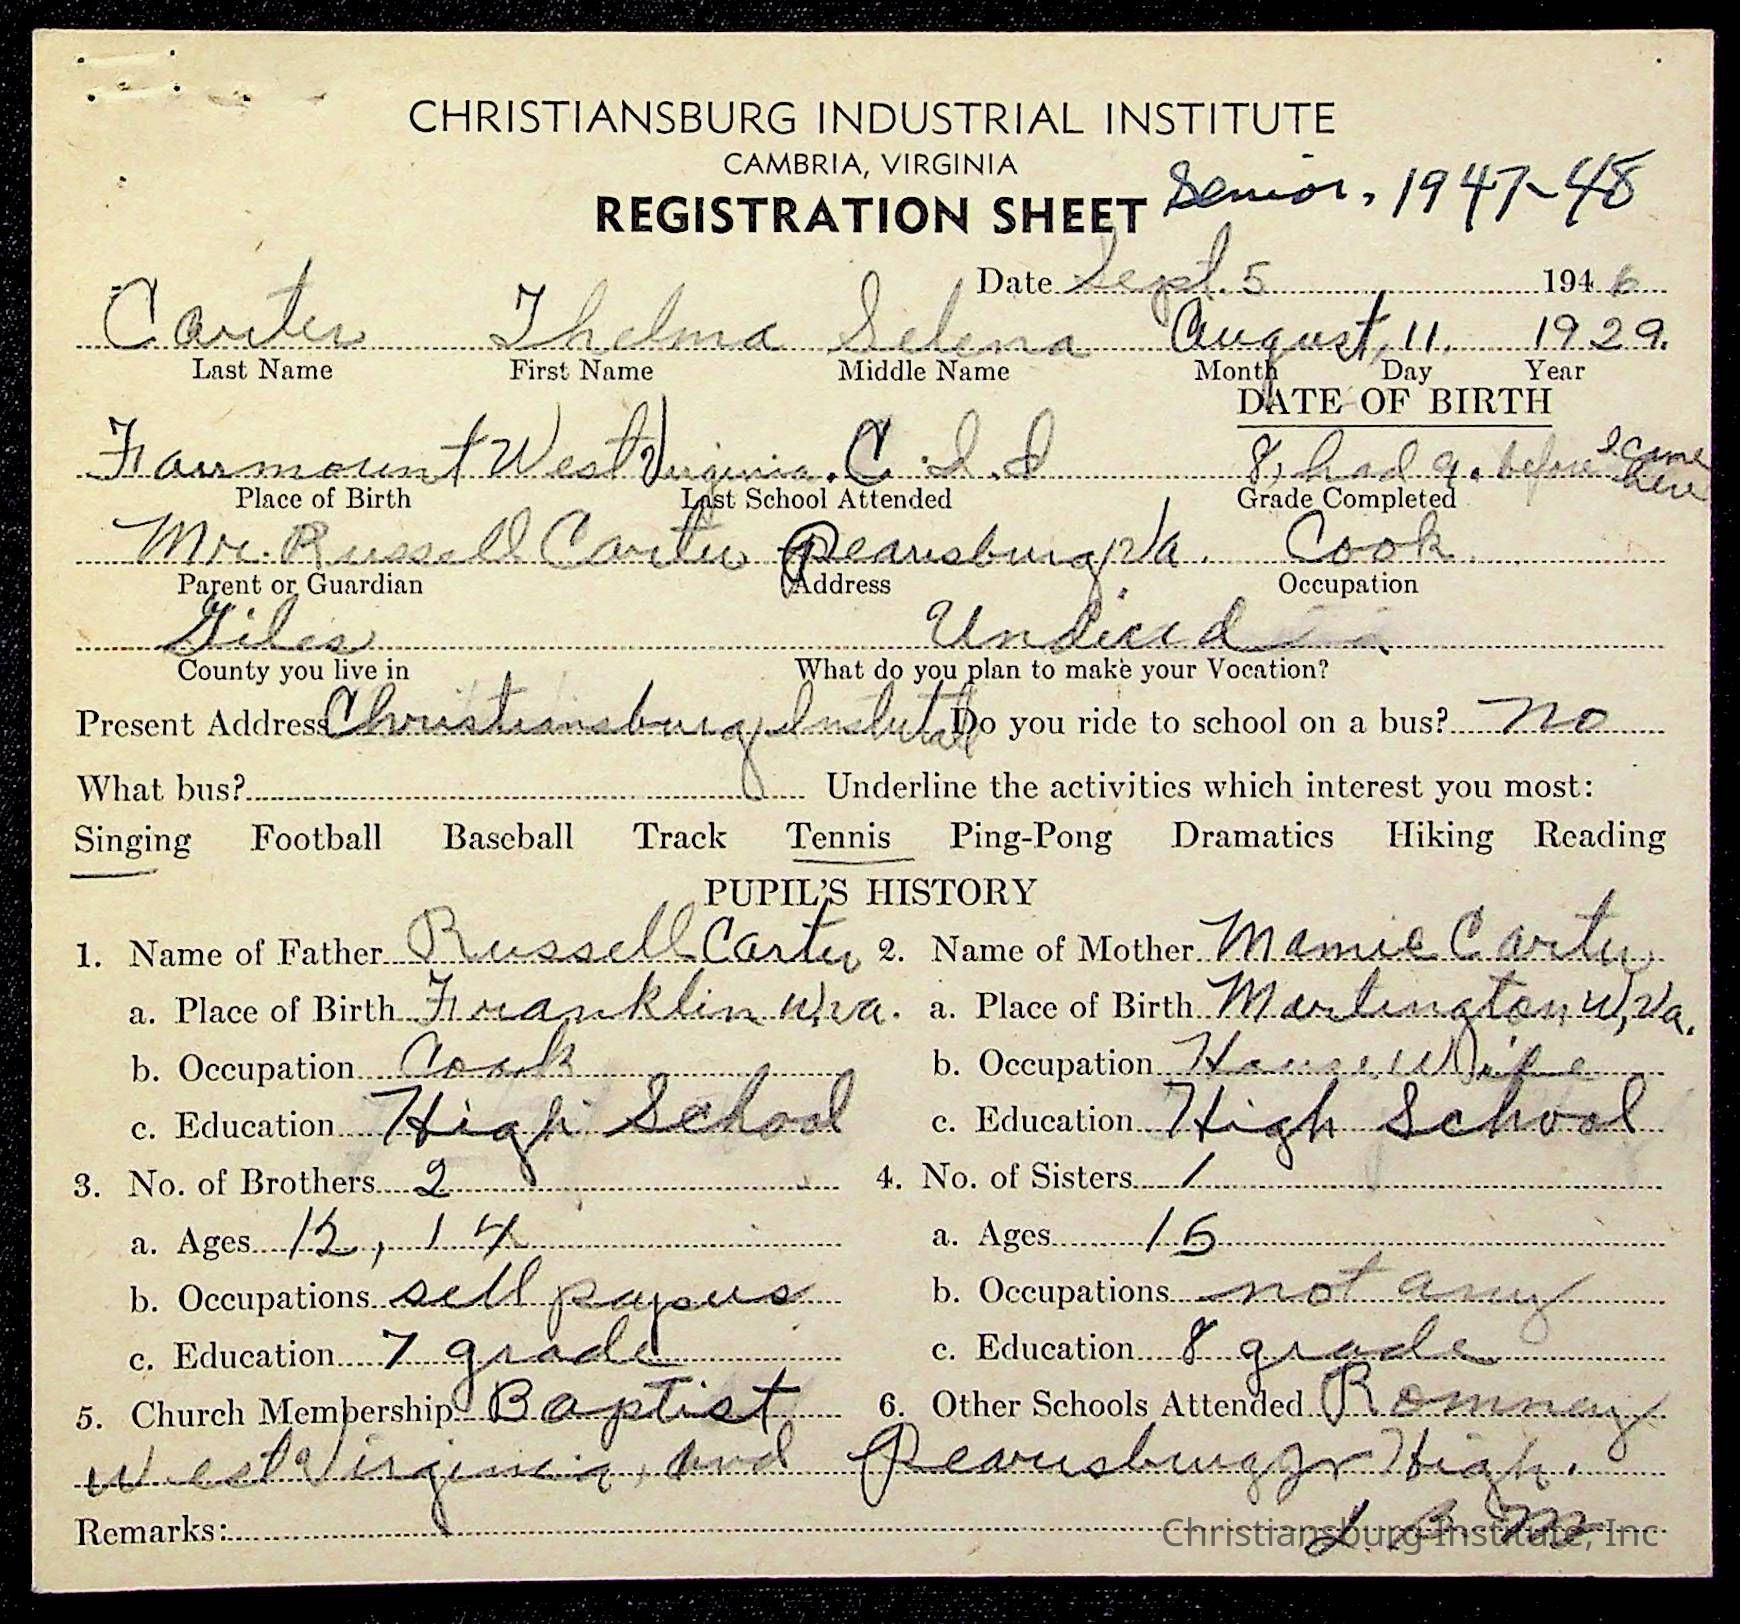 CHRISTIANSBURG INDUSTRIAL INSTITUTE
CAMBRIA, VIRGINIA
REGISTRATION SHEET Senior, 1947-48
Date Sept. 5 1946
Carter Thelma Selena August, 11, 1929.
Last Name First Name Middle Name Month Day Year
DATE OF BIRTH
Fairmount West Virginia. C. I. I 8, had 9. before I came here
Place of Birth Last School Attended Grade Completed
Mr. Russell Carter Pearisburg, Va. Cook
Parent or Guardian Address Occupation
Giles Undicid
County you live in What do you plan to make your Vocation?
Present Address Christiansburg Institute Do you ride to school on a bus? no
What bus? Underline the activities which interest you most:
Singing Football Baseball Track Tennis Ping-Pong Dramatics Hiking Reading
PUPIL'S HISTORY
1. Name of Father Russell Carter 2. Name of Mother Mamie Carter
a. Place of Birth Franklin W.Va. a. Place of Birth Martington, W, Va.
b. Occupation Cook b. Occupation House Wife
c. Education High School c. Education High School
3. No. of Brothers 2 4. No. of Sisters 1
a. Ages 12, 14 a. Ages 15
b. Occupations sell papers b. Occupations not any
c. Education 7 grade c. Education 8 grade
5. Church Membership Baptist 6. Other Schools Attended Romney
West Virginia, and Pearisburg Jr High.
Remarks: L. B. M
Christiansburg Institute, Inc